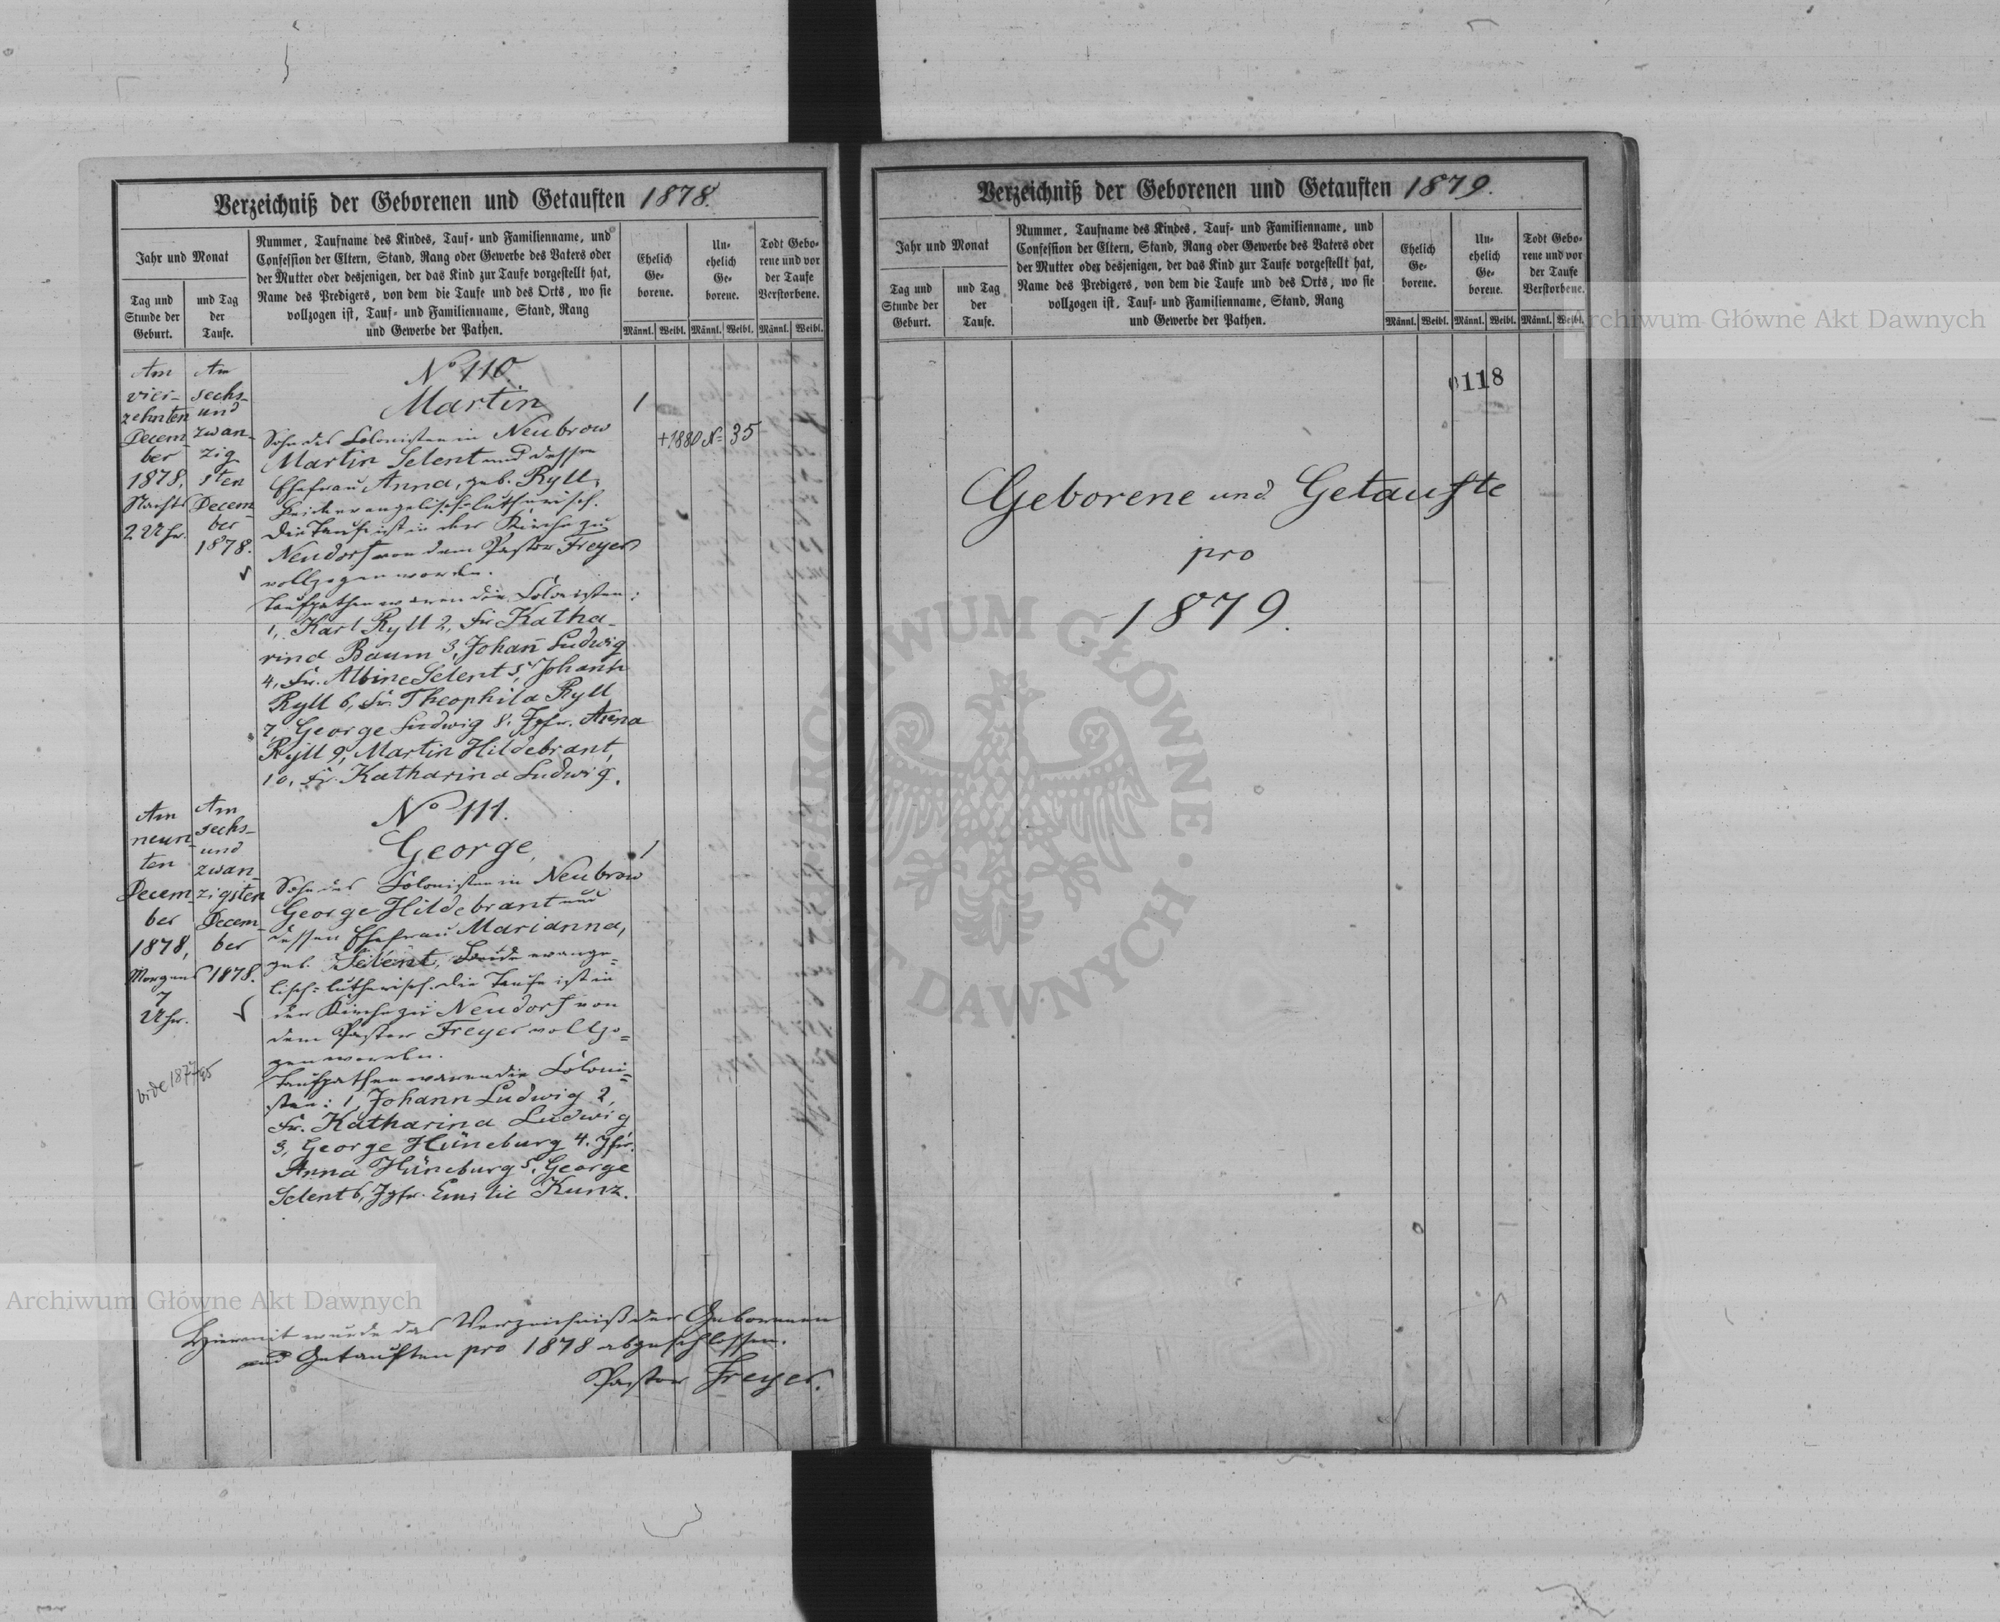 Verzeichniß der Geborenen und Getauften 1878.
Jahr und Monat
Tag und
Stunde der
Geburt.
und Tag
der
Taufe.
Nummer, Taufname des Kindes, Tauf- und Familienname, und
Confession der Eltern, Stand, Rang oder Gewerbe des Vaters oder
der Mutter oder desjenigen, der das Kind zur Taufe vorgestellt hat,
Name des Predigers, von dem die Taufe und des Orts, wo sie
vollzogen ist, Tauf- und Familienname, Stand, Rang
und Gewerbe der Pathen.
Ehelich
Ge-
borene.
Un-
ehelich
Ge-
borene.
Todt Gebo-
rene und vor
der Taufe
Verstorbene.
Männl. Weibl. Männl. Weibl. Männl. Weibl.
Am
vier-
zehnten
Decem-
ber
1878,
Nachts
2 Uhr.
Am
sechs-
und
zwan-
zig
sten
Decem-
ber
1878.
No 110
Martin
Sohn des Colonisten in Neubrow
Martin Selent und dessen
Ehefrau Anna, geb. Ryll,
beide evangelisch-lutherisch.
Die Taufe ist in der Kirche zu
Neudorf von dem Pastor Freyer
vollzogen worden.
Taufpathen waren die Colonisten:
1, Karl Ryll 2, Fr. Katha-
rina Baum 3, Johann Ludwig
4, Fr. Albine Selent 5, Johann
Ryll 6, Fr. Theophila Ryll
7, George Ludwig 8, Jgfr. Anna
Ryll 9, Martin Hildebrant,
10, Fr. Katharina Ludwig.
1
+1880 N 35
Am
neun-
ten
Decem-
ber
1878,
Morgens
7
Uhr.
Am
sechs-
und
zwan-
zigsten
Decem-
ber
1878.
vide 1877/85
No 111.
George,
Sohn des Colonisten in Neubrow
George Hildebrant und
dessen Ehefrau Marianna,
geb. Selent, beide evange-
lisch-lutherisch. Die Taufe ist in
der Kirche zu Neudorf von
dem Pastor Freyer vollzo-
gen worden.
Taufpathen waren die Coloni-
sten: 1, Johann Ludwig 2,
Fr. Katharina Ludwig
3, George Hüneburg 4. Jgfr.
Anna Hüneburg 5, George
Selent 6, Jgfr. Emilie Kunz.
1
Hiermit wurde das Verzeichniß der Geborenen
und Getauften pro 1878 abgeschlossen.
Pastor Freyer.
Verzeichniß der Geborenen und Getauften 1879.
Jahr und Monat
Tag und
Stunde der
Geburt.
und Tag
der
Taufe.
Nummer, Taufname des Kindes, Tauf- und Familienname, und
Confession der Eltern, Stand, Rang oder Gewerbe des Vaters oder
der Mutter oder desjenigen, der das Kind zur Taufe vorgestellt hat,
Name des Predigers, von dem die Taufe und des Orts, wo sie
vollzogen ist, Tauf- und Familienname, Stand, Rang
und Gewerbe der Pathen.
Ehelich
Ge-
borene.
Un-
ehelich
Ge-
borene.
Todt Gebo-
rene und vor
der Taufe
Verstorbene.
Männl. Weibl. Männl. Weibl. Männl. Weibl.
0118
Geborene und Getaufte
pro
1879.
Archiwum Główne Akt Dawnych
Archiwum Główne Akt Dawnych
ARCHIWUM GŁÓWNE AKT DAWNYCH